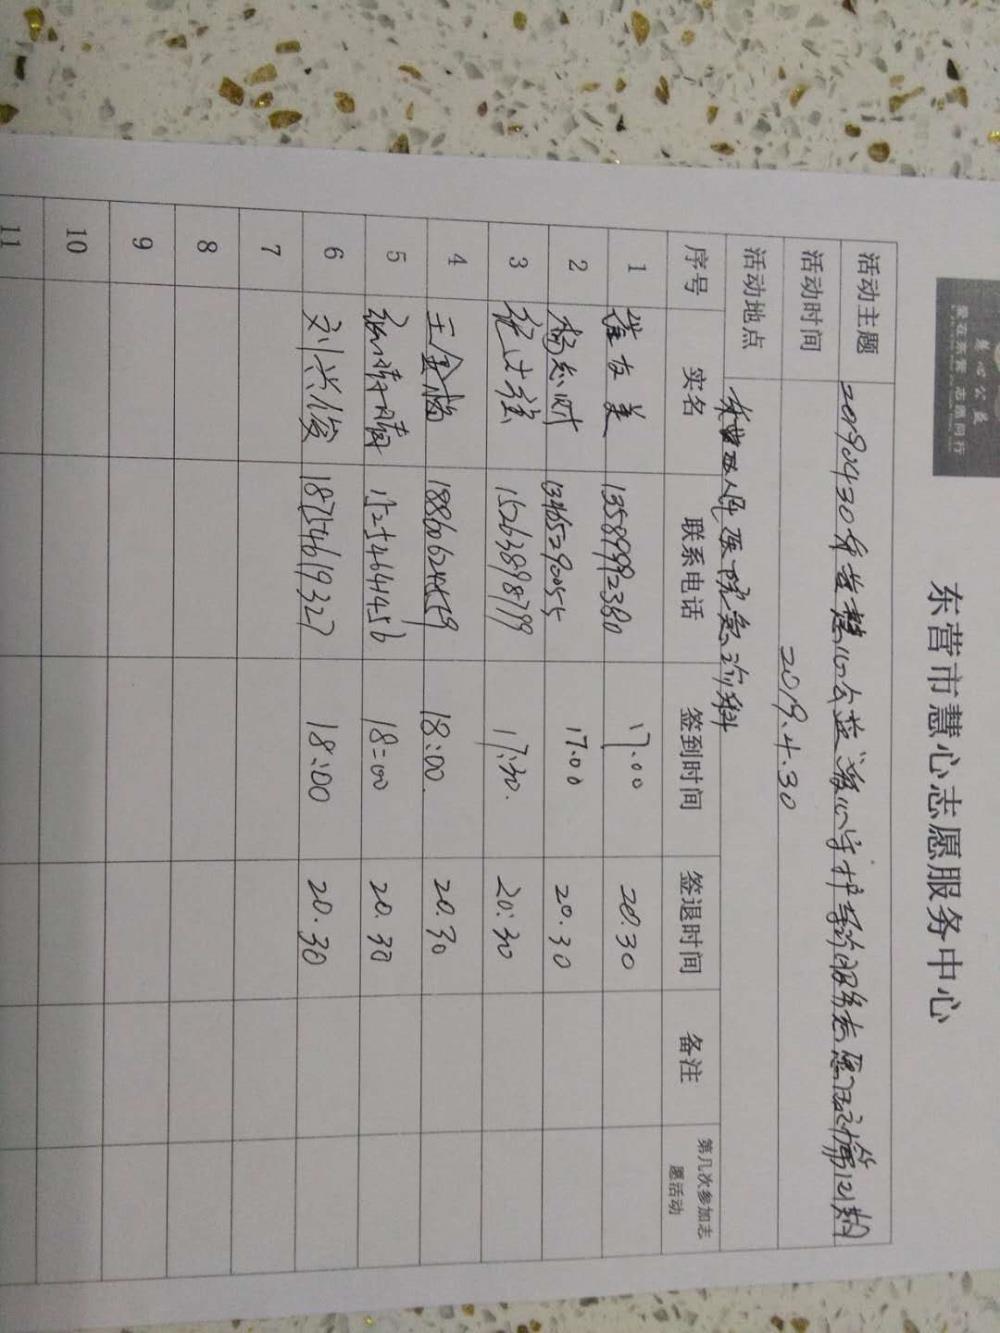 慧心公益
爱在东营 志愿同行
东营市慧心志愿服务中心
活动主题 20190430东营慧心公益爱心守护导诊服务志愿活动第121期
活动时间 2019.4.30
活动地点 东营市人民医院急诊科
序号 实名 联系电话 签到时间 签退时间 备注 第几次参加志愿活动
1 13589992380 17.00 20.30
2 13465290055 17.00 20.30
3 15263898799 17:30. 20:30
4 王金梅 18:00. 20.30
5 张晴晴 15254641456 18:00 20.30
6 刘兴俊 18754619327 18:00 20.30
7
8
9
10
11